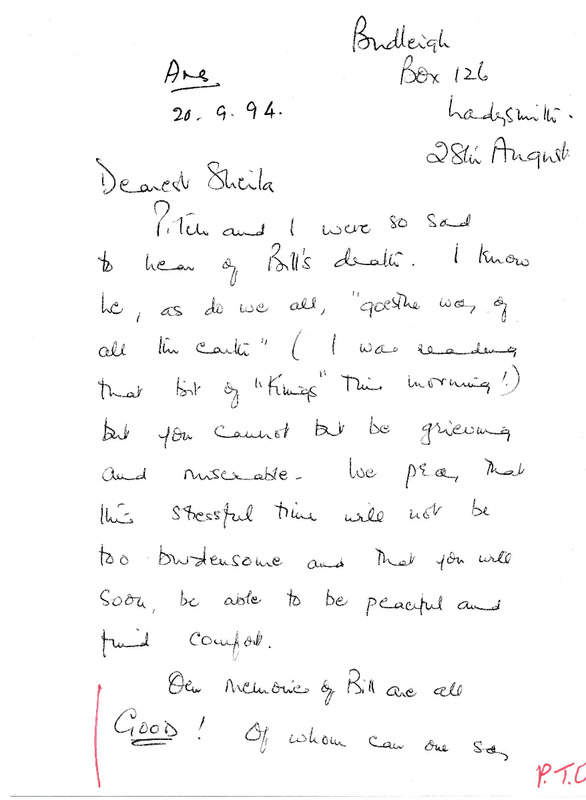 Budleigh
Box 126
Ladysmith.
28th August
Ans
20. 9. 94.
Dearest Sheila
Pitch and I were so sad
to hear of Bill's death. I know
he, as do we all, "goes the way of
all the earth" ( I was reading
that bit of "Kings" this morning!)
but you cannot but be grieving
and miserable. We pray that
this stressful time will not be
too burdensome and that you will
soon, be able to be peaceful and
find comfort.
Our memories of Bill are all
GOOD! Of whom can one say
P.T.O